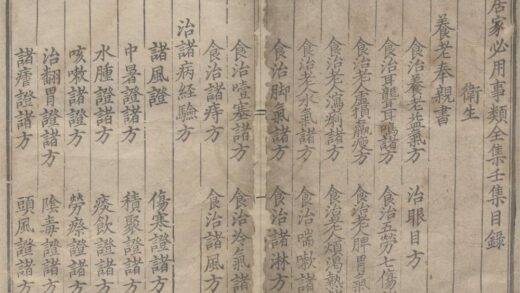 居家必用事類全集壬集目錄
衛生
養老奉親書
食治養老益氣方 治眼目方
食治耳聾耳鳴諸方 食治五勞七傷
食治老人虛損羸瘦方 食治老人脾胃氣
食治老人瀉痢諸方 食治老人煩渴熱
食治老人水氣諸方 食治喘嗽諸
食治脚氣諸方 食治諸淋方
食治噎塞諸方 食治冷氣諸
食治諸痔方 食治諸風方
治諸病經驗方
諸風證 傷寒證諸方
中暑證諸方 積聚證諸方
水腫證諸方 痰飲證諸方
咳嗽證諸方 勞瘵證諸方
治翻胃證諸方 陰毒證諸方
諸瘧證諸方 頭風證諸方